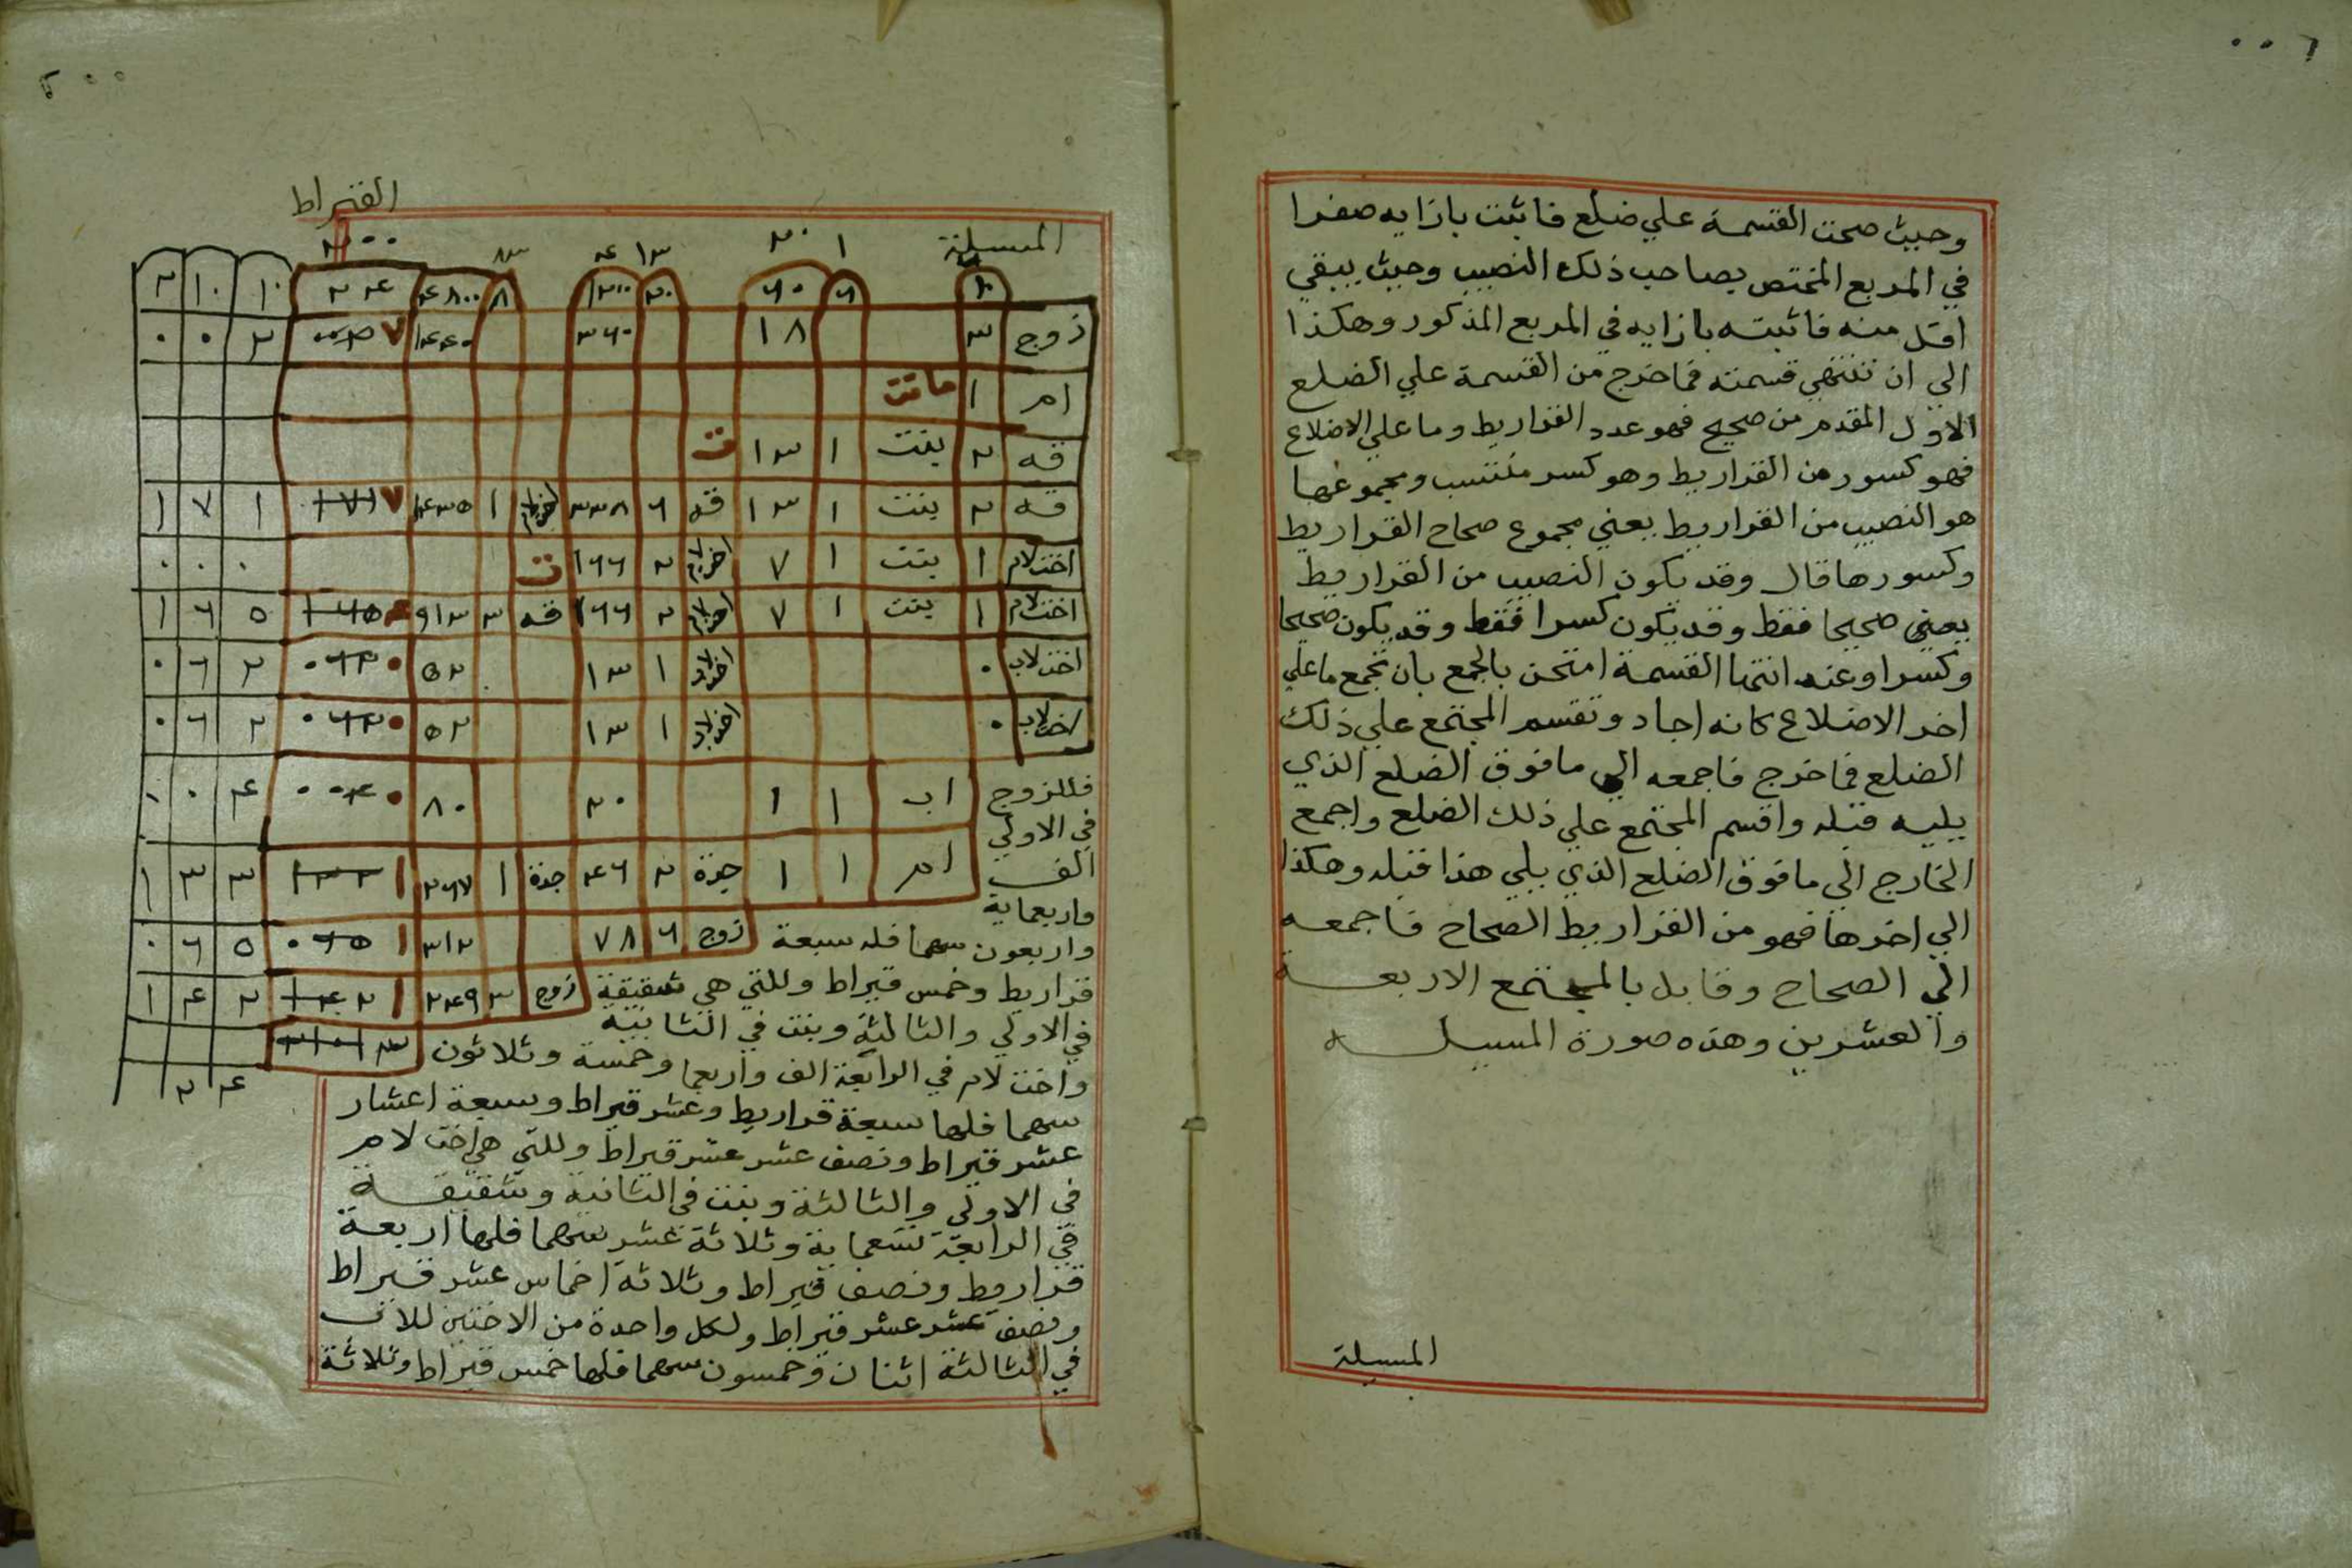 وحيث صحت القسمة علي ضلع فاثبت بازايه صفرا
في المربع المختص بصاحب ذلك النصيب وحيث يبقي
اقل منه فاثبته بازايه في المربع المذكور وهكذا
الي ان تنتهي قسمته فما خرج من القسمة علي الضلع
الاول المقدم من صحيح فهو عدد القراريط وما علي الاضلاع
فهو كسور من القراريط وهو كسر منتسب ومجموعها
هو النصيب من القراريط يعني مجموع صحاح القراريط
وكسورها قال وقد يكون النصيب من القراريط
يعني صحيحا فقط وقد يكون كسرا فقط وقد يكون صحيحا
وكسرا وعند انتها القسمة امتحن بالجمع بان تجمع ما علي
اخر الاضلاع كانه احاد وتقسم المجتمع علي ذلك
الضلع فما خرج فاجمعه الي ما فوق الضلع الذي
يليه قبله واقسم المجتمع علي ذلك الضلع واجمع
الخارج الي ما فوق الضلع الذي يلي هذا قبله وهكذا
الي اخرها فهو من القراريط الصحاح فاجمعه
الي الصحاح وقابل بالمجتمع الاربعة
والعشرين وهذه صورة المسيله
المسيلة
القيراط
المسيلة
١ ٢٠ ١٣ ٤ ٢٠٠
٦ ٦٠ ٢٠ ١٢٠٠ ٨ ٤٨٠٠ ٢٤ ١٠ ١٠ ٢
زوج ٣ ١٨ ٣٦٠ ١٤٤٠ ٧ ٢ ٠ ٠
ام ١ ماتت
قه ٢ بنت ١ ١٣ ت
قه ٢ بنت ١ ١٣ قه ٦ ٣٣٨ ١ ١٤٣٥ ٧ ١٧١ ١ ٧ ١
اخت لام ١ بنت ١ ٧ ٢ ١٦٦ ت ٠ ٠ ٠
اخت لام ١ بنت ١ ٧ ٢ ١٦٦ قه ٣ ٩١٣ ٤ ١٦٥ ٥ ٦ ١
اخت لاب ٠ ١ ١٣ ٥٢ ٠ ٠٦٢ ٢ ٦ ٠
اخت لاب ٠ ١ ١٣ ٥٢ ٠ ٠٦٢ ٢ ٦ ٠
اب ١ ١ ٢٠ ٨٠ ٠ ٠٠٤ ٤ ٠ ٠
ام ١ ١ جدة ٢ ٤٦ جدة ١ ٢٦٧ ١ ١٣٣ ٣ ٣ ١
زوج ٦ ٧٨ ٣١٢ ١ ٠٦٥ ٥ ٦ ٠
زوج ٣ ٢٤٩ ١ ١٤٢ ٢ ٤ ١
٢٤
فللزوج
في الاولي
الف
واربعماية
واربعون سهما فله سبعة
قراريط وخمس قيراط وللتي هي شقيقة
في الاولي والثالثة وبنت في الثانية
واخت لام في الرابعة الف واربعما وخمسة وثلاثون
سهما فلها سبعة قراريط وعشر قيراط وسبعة اعشار
عشر قيراط ونصف عشر عشر قيراط وللتي هي اخت لام
في الاولي والثالثة وبنت في الثانية وشقيقة
في الرابعة تسعماية وثلاثة عشر سهما فلها اربعة
قراريط ونصف قيراط وثلاثة اخماس عشر قيراط
ونصف عشر عشر قيراط ولكل واحدة من الاختين للاب
في الثالثة اثنان وخمسون سهما فلها خمس قيراط وثلاثة